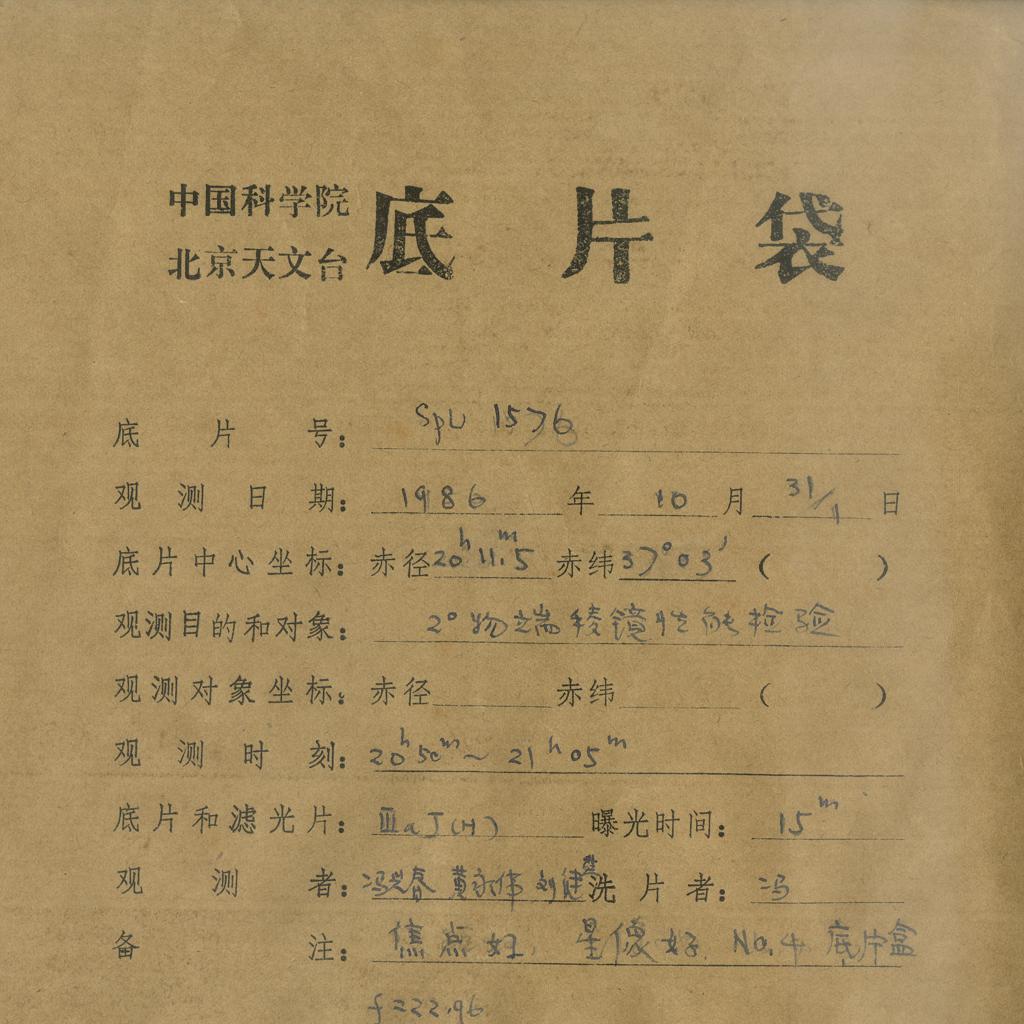 中国科学院
北京天文台 底片袋
底片号: SpU 1576
观测日期: 1986 年 10 月 31/1 日
底片中心坐标: 赤径 20h 11m.5 赤纬 37°03′ ( )
观测目的和对象: 2°物端棱镜性能检验
观测对象坐标: 赤径 赤纬 ( )
观测时刻: 20h50m ~ 21h05m
底片和滤光片: ⅢaJ(H) 曝光时间: 15m
观测者: 冯 春 黄永伟 刘 洗片者: 冯
备注: 焦点好, 星像好. No.4 底片盒
f=22.96